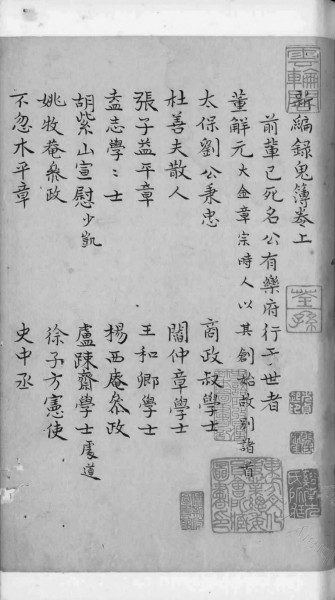 新編錄鬼簿卷上
前輩已死名公有樂府行于世者
董解元大金章宗時人以其創始故列諸首
太保劉公秉忠 商政叔學士
杜善夫散人 閻仲章學士
張子益平章 王和卿學士
盍志學〻士 楊西庵叅政
胡紫山宣慰少凱 盧踈齋學士處道
姚牧菴叅政 徐子方憲使
不忽木平章 史中丞